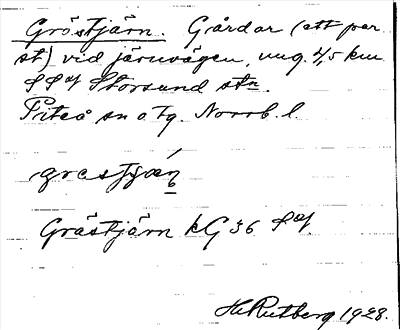 Gröstjärn. Gårdar (ett par
st) vid järnvägen, ung. 4,5 km
SSO Storsund stn.
Piteå sn o tg. Norrb. l.
Gråstjärn kG 36 SO.
H. Rutberg 1928.